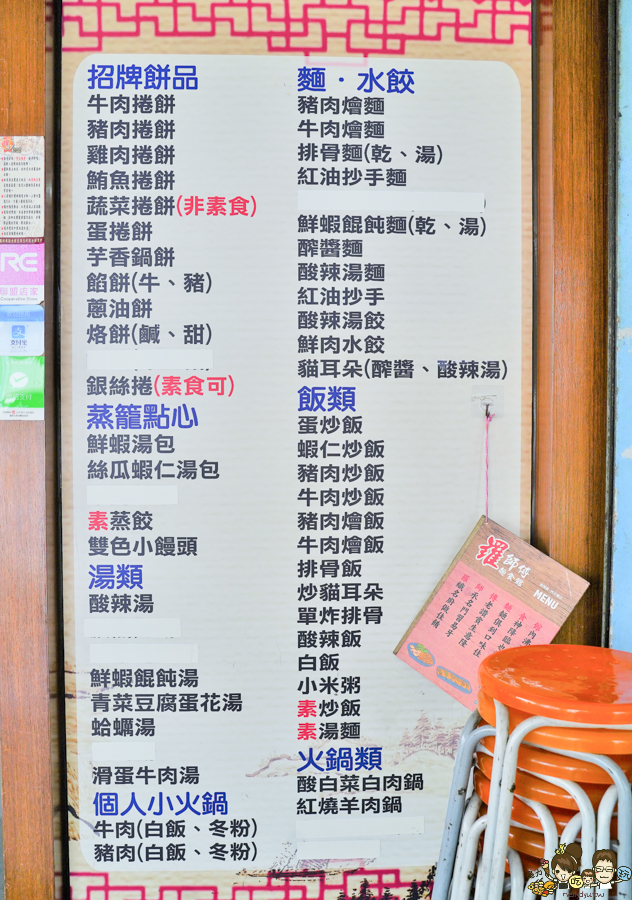 招牌餅品
牛肉捲餅
豬肉捲餅
雞肉捲餅
鮪魚捲餅
蔬菜捲餅(非素食)
蛋捲餅
芋香鍋餅
餡餅(牛、豬)
蔥油餅
烙餅(鹹、甜)
銀絲捲(素食可)
蒸籠點心
鮮蝦湯包
絲瓜蝦仁湯包
素蒸餃
雙色小饅頭
湯類
酸辣湯
鮮蝦餛飩湯
青菜豆腐蛋花湯
蛤蠣湯
滑蛋牛肉湯
個人小火鍋
牛肉(白飯、冬粉)
豬肉(白飯、冬粉)
麵・水餃
豬肉燴麵
牛肉燴麵
排骨麵(乾、湯)
紅油抄手麵
鮮蝦餛飩麵(乾、湯)
醡醬麵
酸辣湯麵
紅油抄手
酸辣湯餃
鮮肉水餃
貓耳朵(醡醬、酸辣湯)
飯類
蛋炒飯
蝦仁炒飯
豬肉炒飯
牛肉炒飯
豬肉燴飯
牛肉燴飯
排骨飯
炒貓耳朵
單炸排骨
酸辣飯
白飯
小米粥
素炒飯
素湯麵
火鍋類
酸白菜白肉鍋
紅燒羊肉鍋
羅師傅
MENU
RE
支付宝